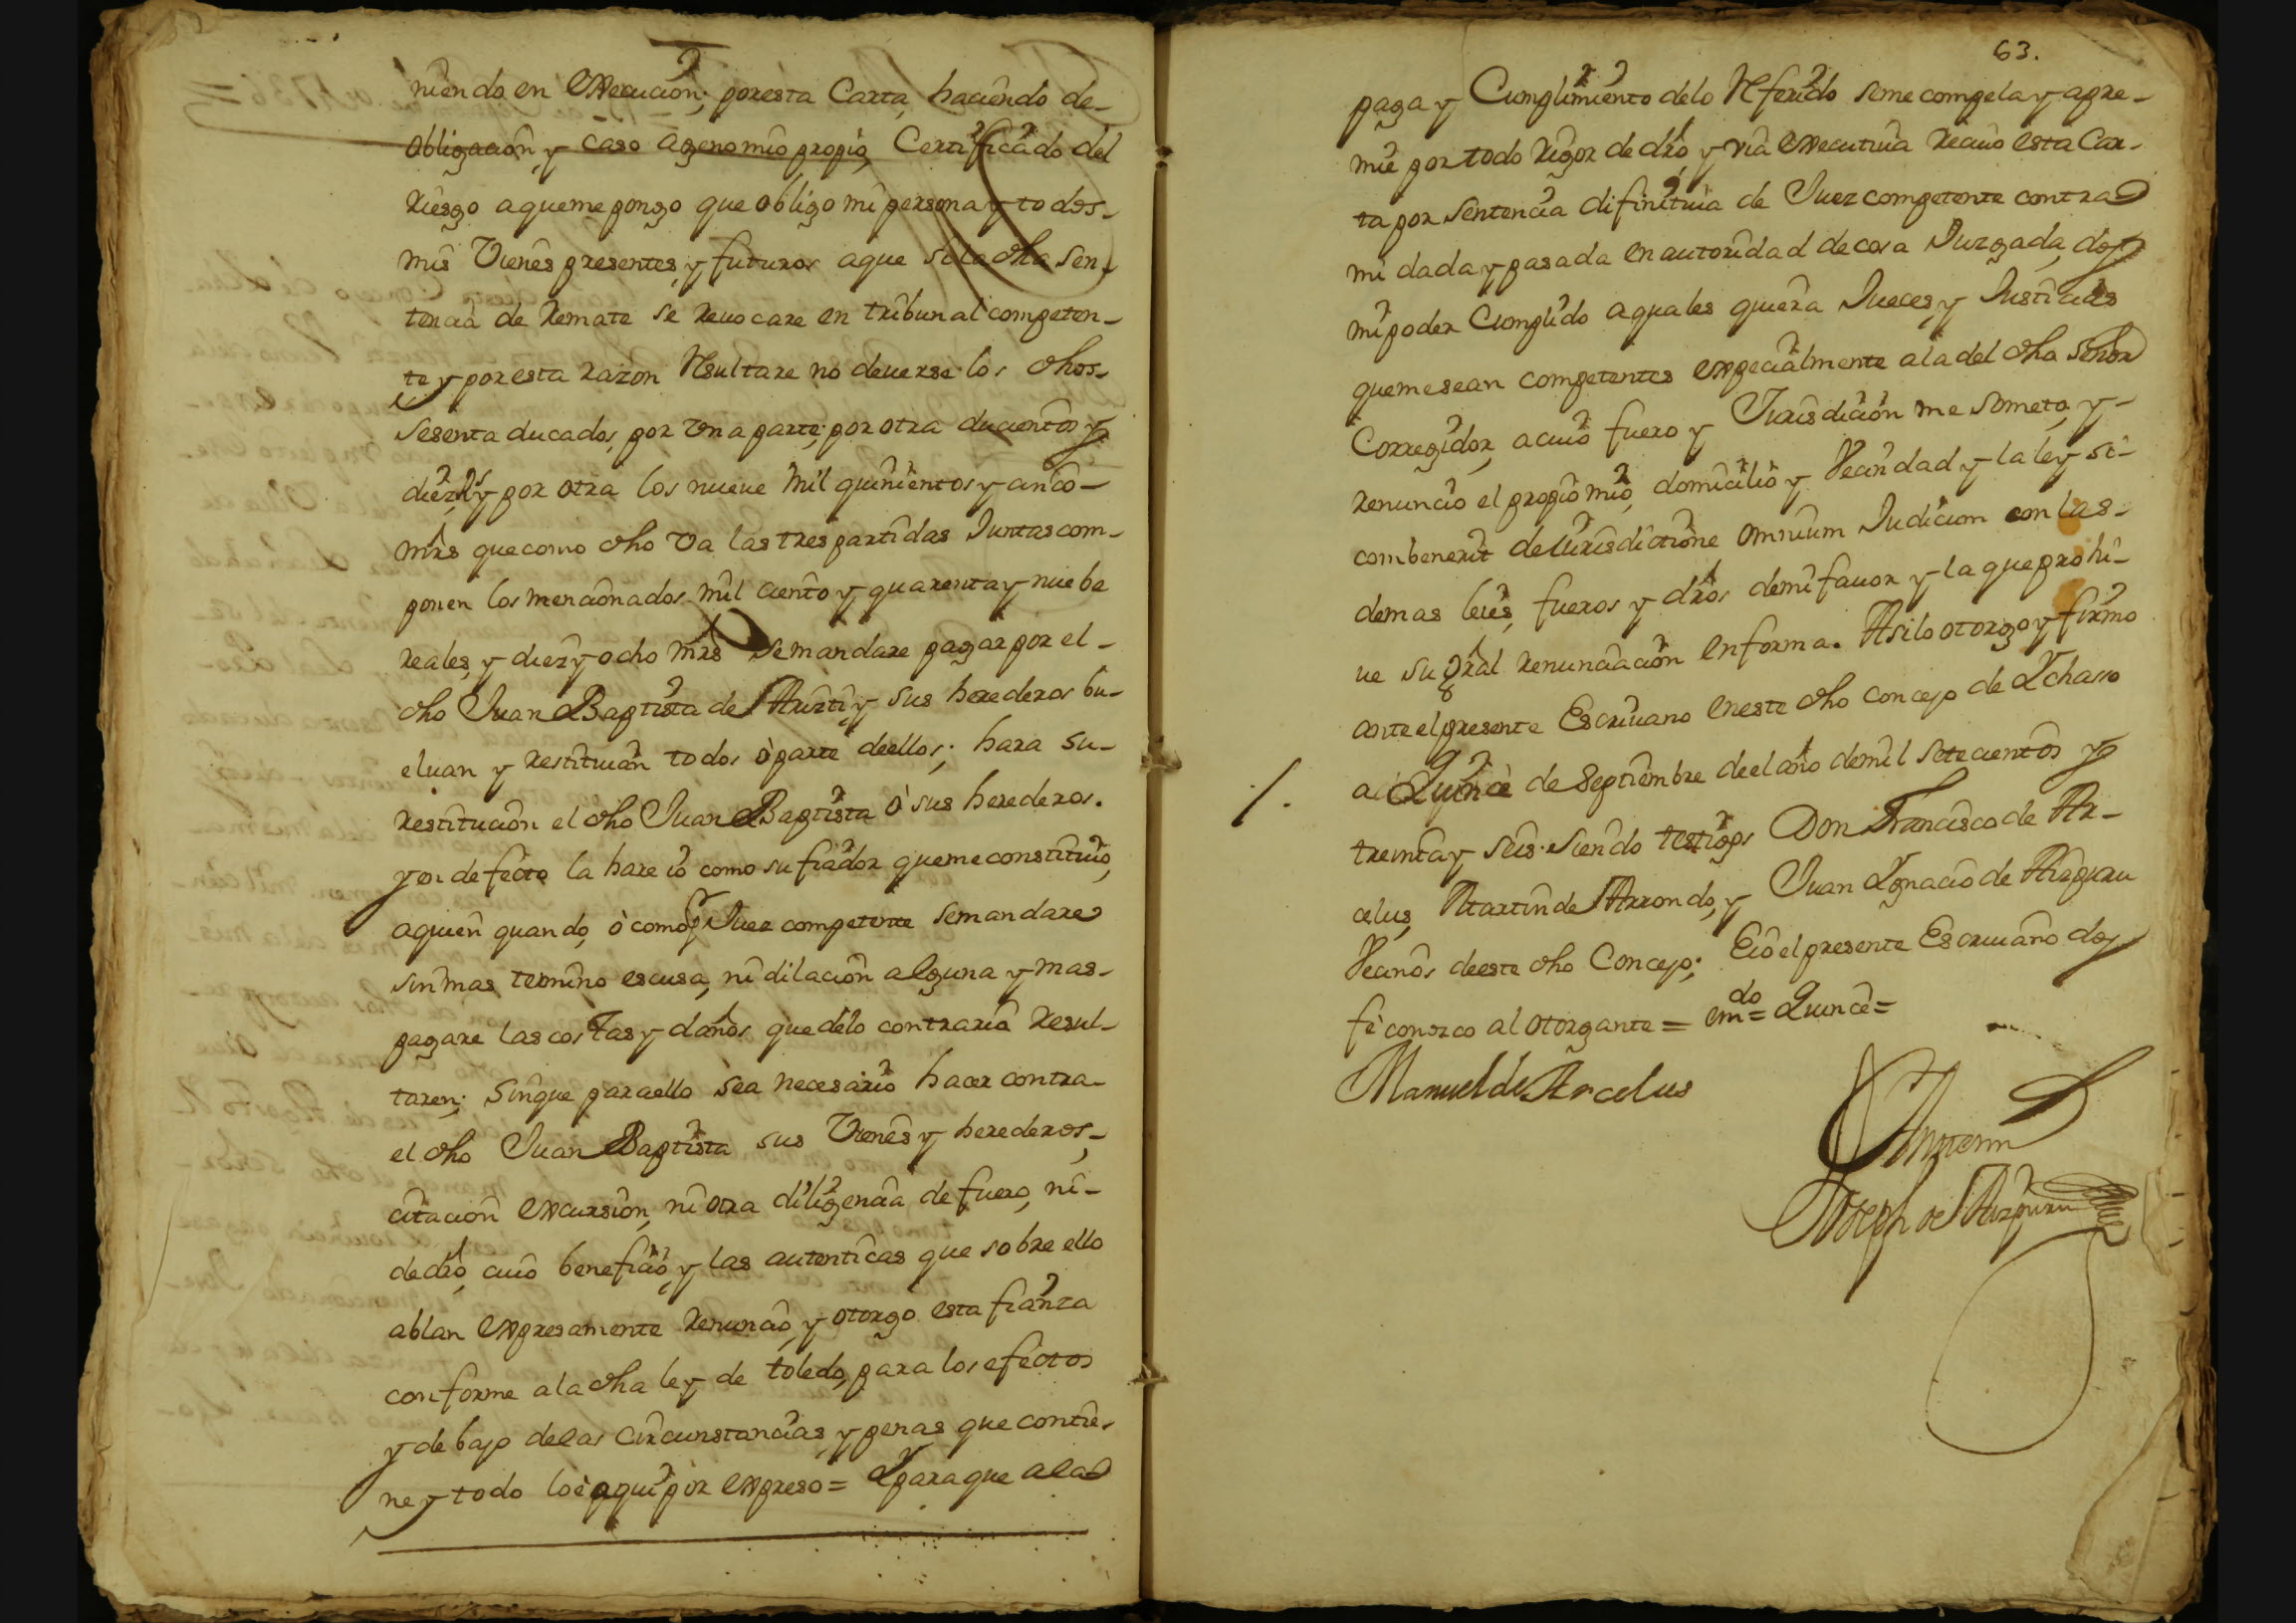 niendo en execucion; por esta Carta, haciendo de-
obligacion, y caso ageno mio propio, Certificado del
riesgo a que me pongo que obligo mi persona y todos-
mis Vienes presentes, y futuros a que si la dha sen-
tencia de remate se reuocare en tribunal competen-
te y por esta razon Resultare no deuerse los dhos-
sesenta ducados, por Vna parte; por otra ducientos y
diez rs y por otra los nueue mil quinientos y cinco-
mrs que como dho Va las tres partidas Juntas com-
ponen los mencionados mil ciento y quarenta y nuebe
reales, y diez y ocho mrs se mandare pagar por el-
dho Juan Baptista de Aurti, y sus herederos bu-
eluan y restituian todos ò parte dellos; hara su-
restitucion el dho Juan Baptista ò sus herederos.
y en defecto la hare io como su fiador que me constituio,
a quien quando, ò como pr Juez competente se mandare
sin mas termino escusa, ni dilacion alguna y mas-
pagare las costas y daños que delo contrario resul-
taren; sin que para ello sea necesario hacer contra-
el dho Juan Baptista sus Vienes y herederos,-
citacion excursion, ni otra diligencia de fuero, ni-
de dro, cuio beneficio, y las autenticas que sobre ello
ablan expresamente renuncio, y otorgo esta fianza
conforme a la dha ley de toledo, para los efectos
y debajo de las circunstancias, y penas que contie-
ne y todo loè aqui por expreso = Y para que a la
63.
paga y Cumplimiento de lo Referido se me compela y apre-
mie por todo rigor de dro, y via executiua reciuo esta Car-
ta por Sentencia difinitiuia de Juez competente contra
mi dada y pasada en autoridad de cosa Juzgada, doy
mi poder Cumplido a quales quiera Jueces, y Justicias
que me sean competentes expecialmente a la del dho Señor
Corregidor, a cuio fuero y Jurisdicion me someto, y-
renuncio el propio mio, domicilio y Vecindad y la ley si-
combenerit de Jurisdictione omnium Judicum con las-
demas leies, fueros y dros de mi fauor y la que prohi-
ue su gral renunciacion en forma. Asi lo otorgo y firmo
ante el presente Escriuano en este dho concejo de Ychaso
a Quince de Septiembre de el año de mil setecientos y
treinta y seis. siendo testigos Don Francisco de Ar-
celus, Martin de Arrondo, y Juan Ygnacio de Aizpuru
Vecinos de este dho Concejo; E io el presente Escriuano doy
fè conozco al otorgante = em do = Quince =
Manuel de Arcelus
Antemi
Joseph de Aizpuru